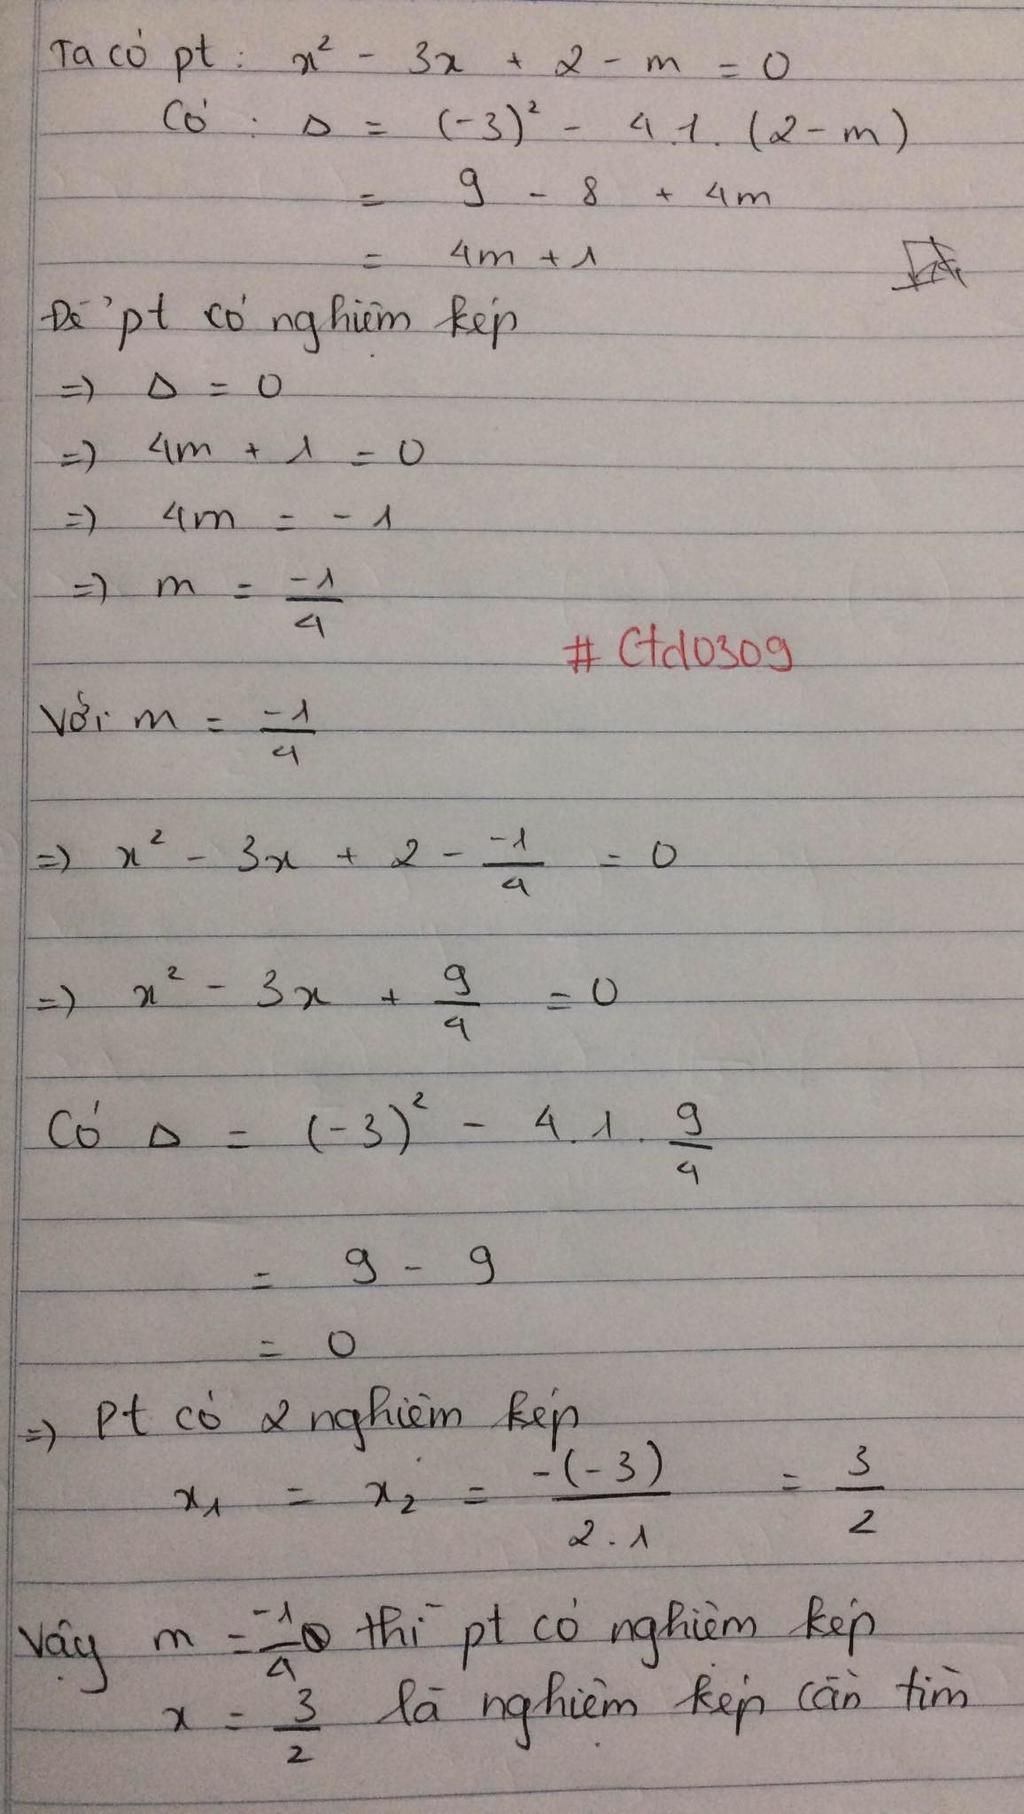 Ta có pt: x² - 3x + 2 - m = 0
Có: Δ = (-3)² - 4.1.(2-m)
= 9 - 8 + 4m
= 4m + 1
Để pt có nghiệm kép
=> Δ = 0
=> 4m + 1 = 0
=> 4m = -1
=> m = -1/4
# Ctd0309
Với m = -1/4
=> x² - 3x + 2 - -1/4 = 0
=> x² - 3x + 9/4 = 0
Có Δ = (-3)² - 4.1.9/4
= 9 - 9
= 0
=> Pt có 2 nghiệm kép
x₁ = x₂ = -(-3)/2.1 = 3/2
Vậy m = -1/4 thì pt có nghiệm kép
x = 3/2 là nghiệm kép cần tìm